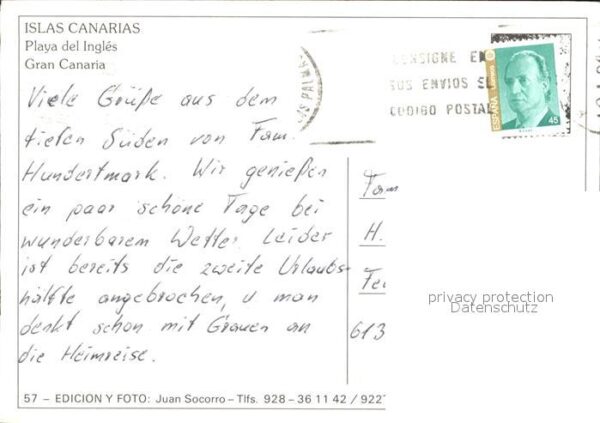 ISLAS CANARIAS
Playa del Inglés
Gran Canaria
CONSIGNE EN
SUS ENVIOS EL
CODIGO POSTAL
ESPAÑA
correos
45
Viele Grüße aus dem
tiefen Süden von Fam.
Hundertmark. Wir genießen
ein paar schöne Tage bei
wunderbarem Wetter. Leider
ist bereits die zweite Urlaubs-
hälfte angebrochen, u man
denkt schon mit Grauen an
die Heimreise.
Fam
H.
613
privacy protection
Datenschutz
57 – EDICION Y FOTO: Juan Socorro – Tlfs. 928 - 36 11 42 / 922